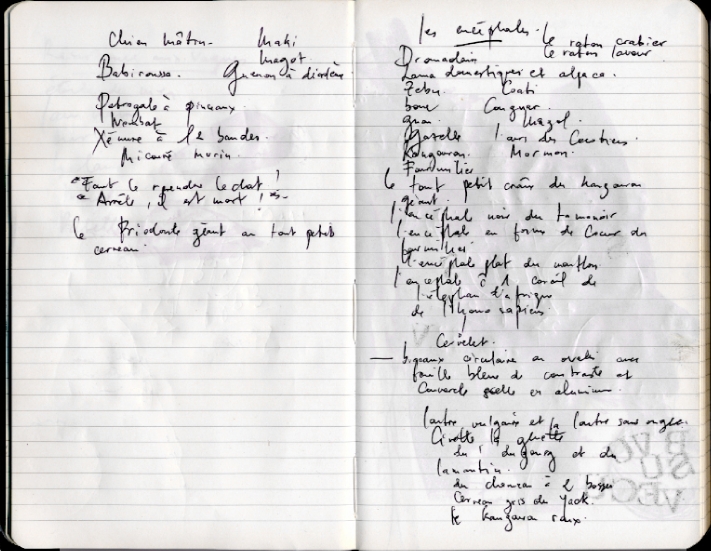 Chien mâtin. Maki
Magot
Babiroussa. Guenon à diadème
Petrogale à pinceaux
Wombat
à 12 bandes.
Micoure murin.
"Faut le rpendre le chat !
" Arrête, il est mort ! "
le Priodonte géant au tout petit
cerveau.
les encéphales. le raton crabier
le raton laveur
Dromadaire
Lama domestique et alpaca.
Zebu. Coati
bouc Couguar.
gnou.
Gazelle l'ours des Cocotiers
Kangourou. Mormon.
Fourmilier
le tout petit crâne du kangourou
géant.
l'encéphale noir du tamanoir
l'encéphale en forme de Coeur du
fourmilier
l'encéphale plat du mouflon
l'encéphale à 1 de
l'éléphan d'afrique
de l'Homo sapiens
Cervelet.
— bocaux circulaire ou ovale avec
feuille bleue de contraste et
Couvercle scellé en aluminium.
loutre vulgaire et la loutre sans ongles.
Civette la genette
du dugong et du
lamantin.
du chameau à 2 bosses
Cerveau gris du Yack.
le Kangourou roux.